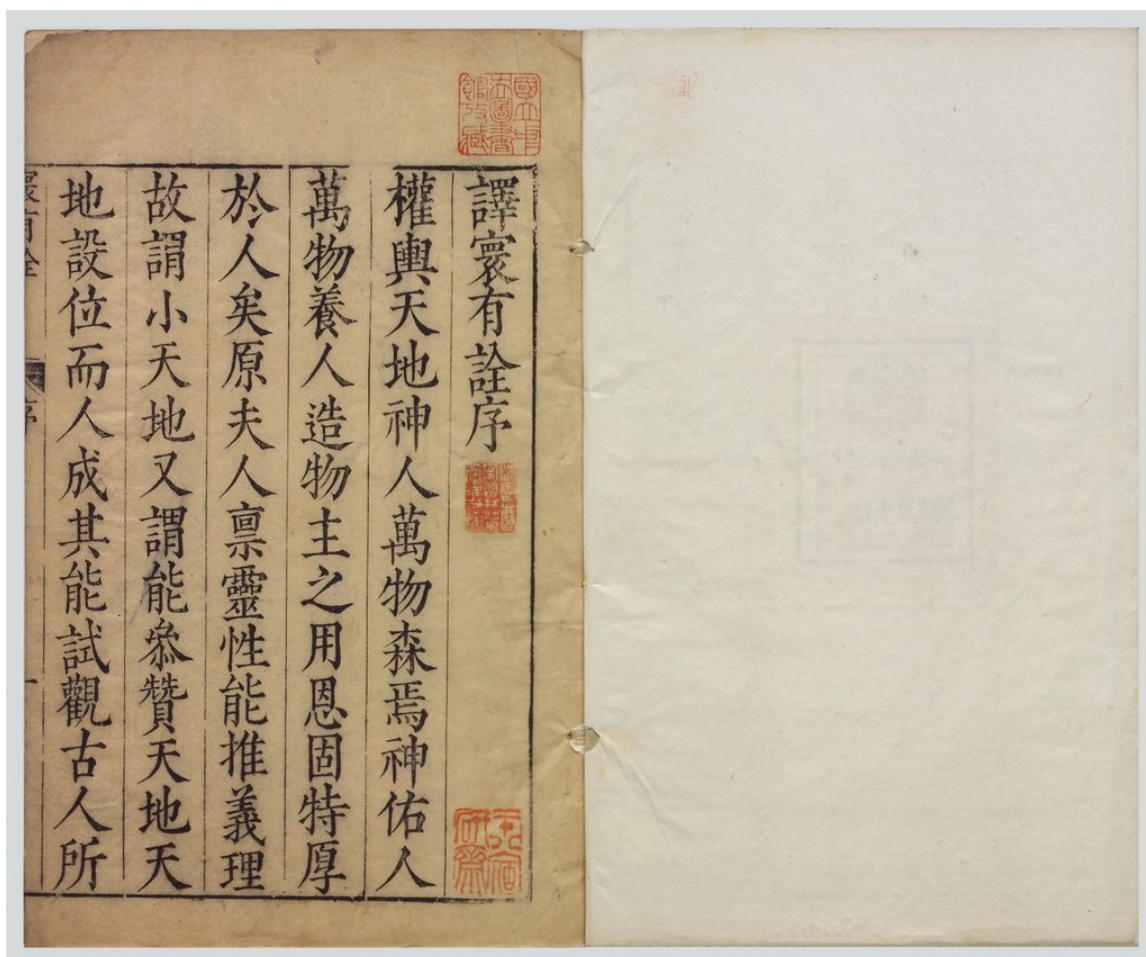 譯寰有詮序
權輿天地神人萬物森焉神佑人
萬物養人造物主之用恩固特厚
於人矣原夫人禀靈性能推義理
故謂小天地又謂能叅贊天地天
地設位而人成其能試觀古人所
寰有詮
序
一
國立中
央圖書
館收藏